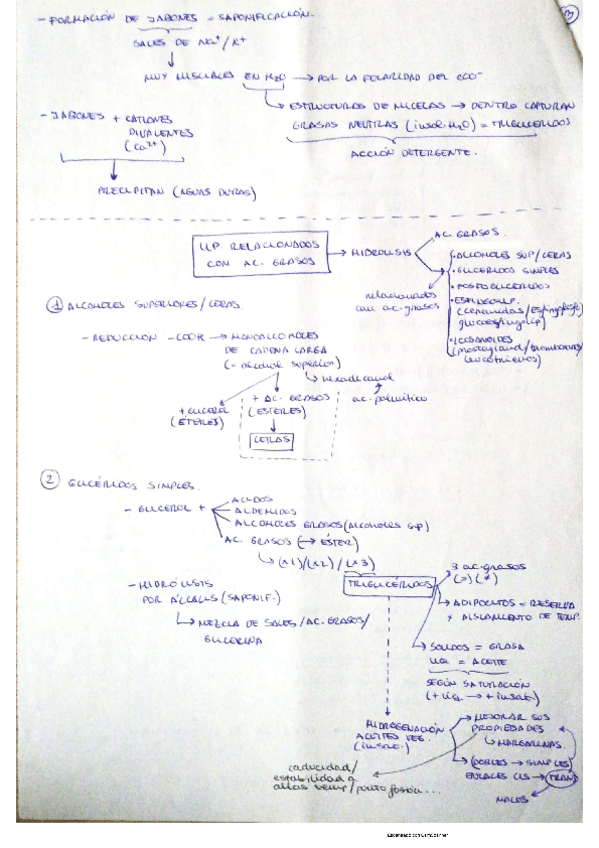 - FORMACIÓN DE JABONES = SAPONIFICACIÓN.
3
SALES DE Na⁺/K⁺
MUY MISCIBLES EN H₂O → POR LA POLARIDAD DEL COO⁻
ESTRUCTURAS DE MICELAS → DENTRO CAPTURAN
GRASAS NEUTRAS (insol. H₂O) = TRIGLICÉRIDOS
ACCIÓN DETERGENTE.
- JABONES + CATIONES
DIVALENTES
(Ca²⁺)
PRECIPITAN (AGUAS DURAS)
LIP. RELACIONADOS
CON AC. GRASOS
→ HIDRÓLISIS
AC. GRASOS.
relacionados
con ac. grasos
· ALCOHOLES SUP/CERAS
· GLICÉRIDOS SIMPLES
· FOSFOGLICÉRIDOS
· ICOSANOIDES
leucotrienos)
1 ALCOHOLES SUPERIORES/CERAS.
- REDUCCIÓN -COOH → MONOALCOHOLES
DE CADENA LARGA
(= alcohol superior)
hexadecanol
ac. palmítico
+ GLICEROL
(ÉTERES)
+ AC. GRASOS
(ÉSTERES)
CERAS
2 GLICÉRIDOS SIMPLES.
- GLICEROL +
ÁCIDOS
ALDEHIDOS
ALCOHOLES GRASOS (ALCOHOLES sup)
AC. GRASOS (→ ÉSTER)
(x1)/(x2)/(x3)
TRIGLICÉRIDOS
3 ac. grasos
(=) (≠)
ADIPOCITOS = RESERVA
Y AISLAMIENTO DE TEMP.
SÓLIDOS = GRASA
LIQ = ACEITE
SEGÚN SATURACIÓN
(+ liq. → + insat.)
- HIDRÓLISIS
POR ÁLCALIS (SAPONIF.)
MEZCLA DE SALES/AC. GRASOS/
GLICERINA
HIDROGENACIÓN
ACEITES VEG.
(insat.)
MEJORAR SUS
PROPIEDADES
MARGARINAS.
(DOBLES → SIMPLES)
ENLACES CIS → TRANS
MALOS
caducidad/
estabilidad a
altas temp/punto fusión...
Escaneado con CamScanner